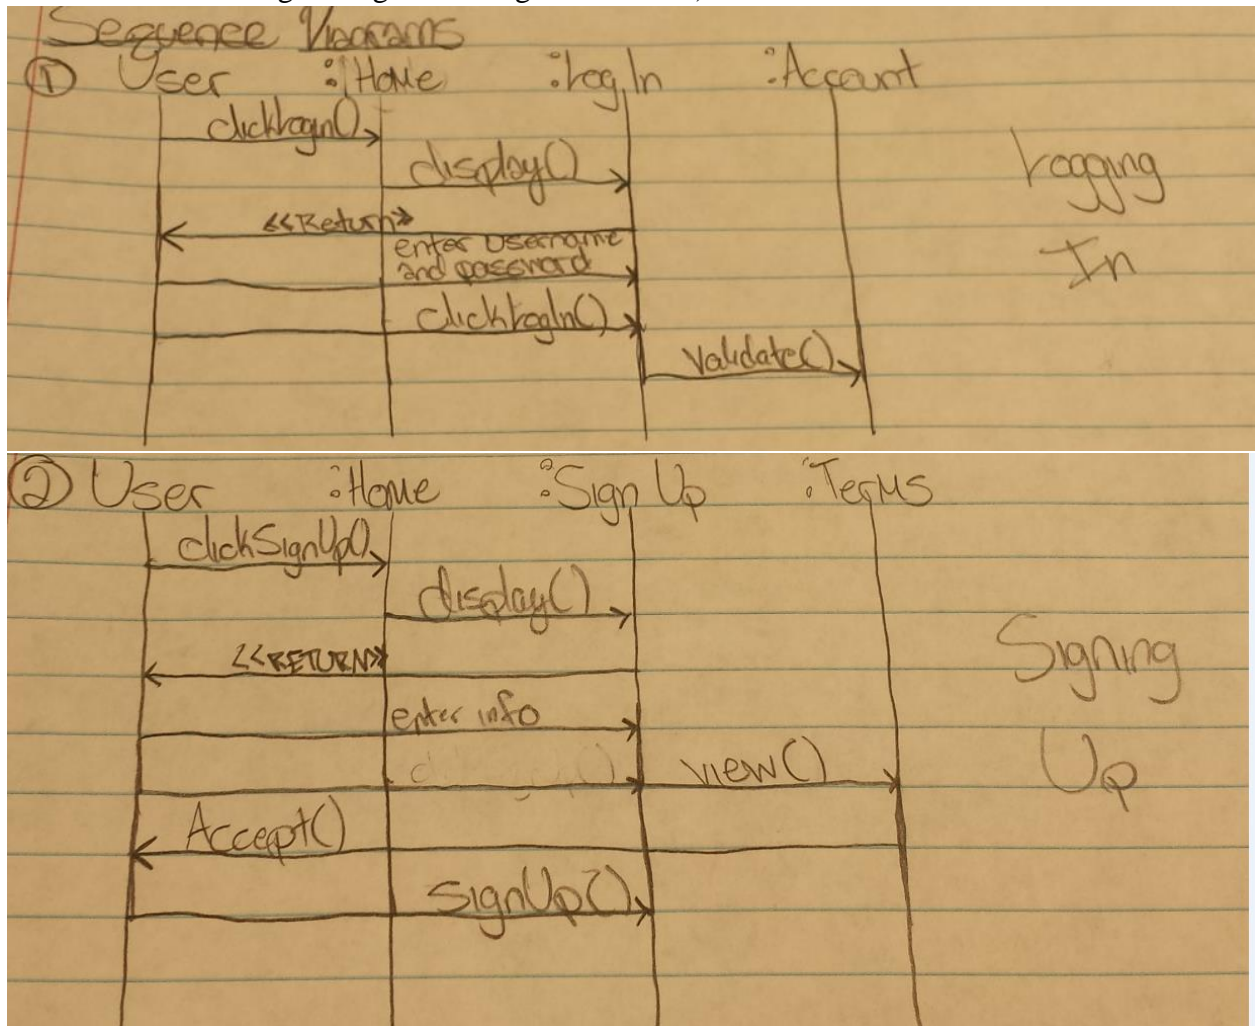 Sequence Diagrams
① User :Home :LogIn :Account
clickLogin()
display()
<<Return>>
enter username
and password
clickLogIn()
validate()
Logging
In
② User :Home :Sign Up :Terms
clickSignUp()
display()
<<RETURN>>
enter info
view()
Accept()
signUp()
Signing
Up